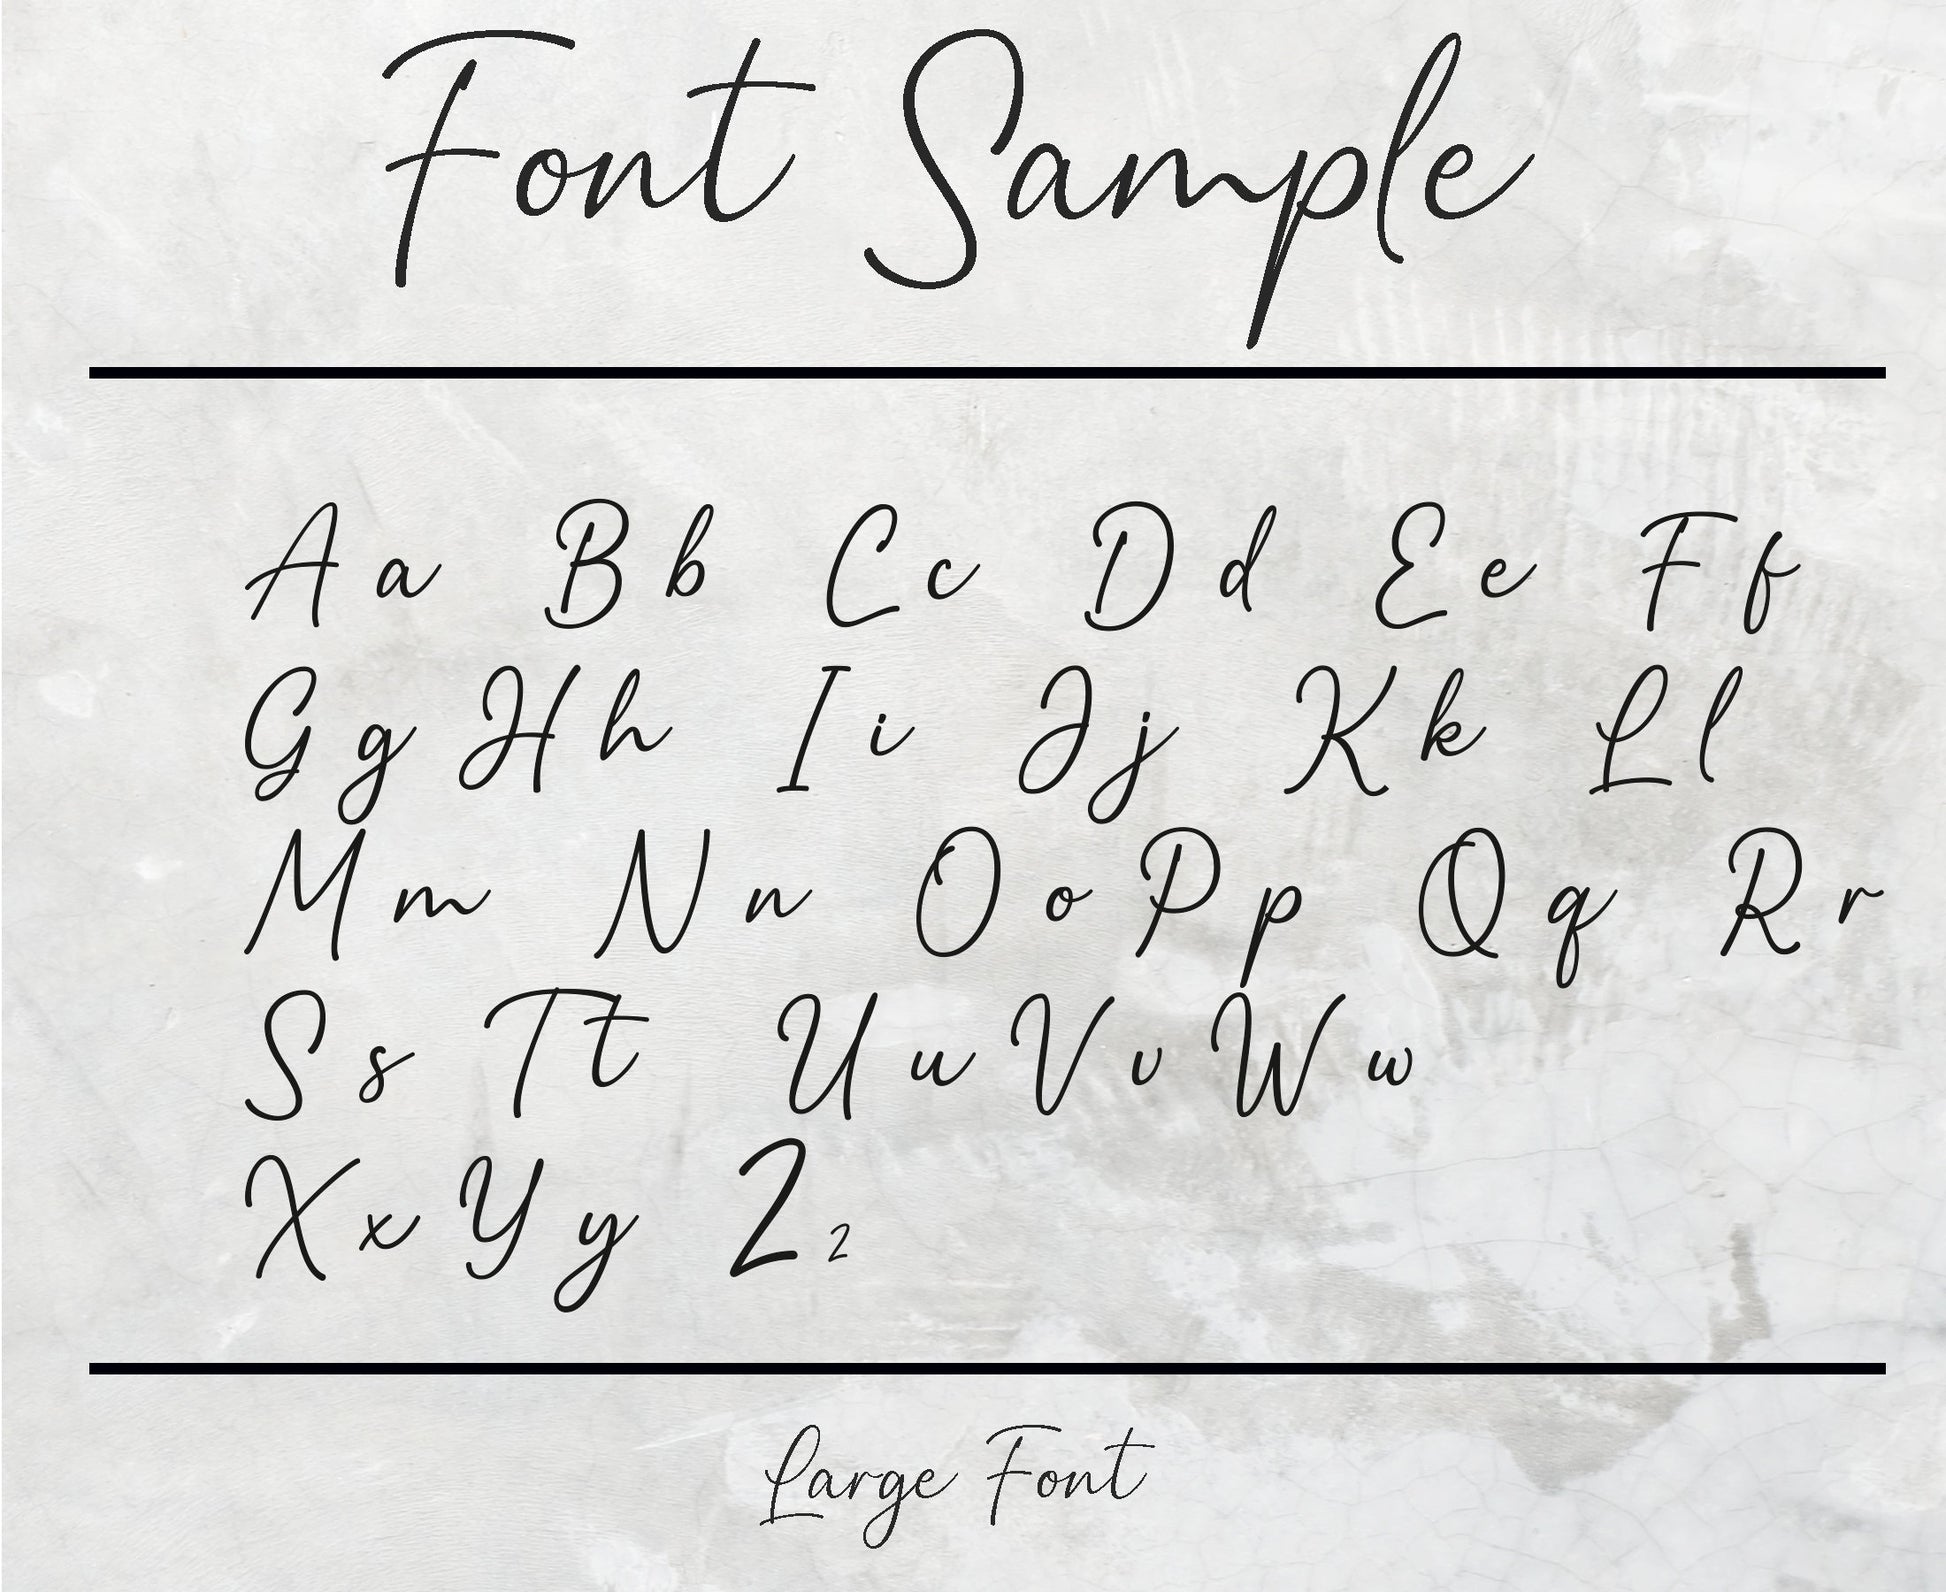 Font Sample
A a B b C c D d E e F f
G g H h I i J j K k L l
M m N n O o P p Q q R r
S s T t U u V v W w
X x Y y Z z
Large Font